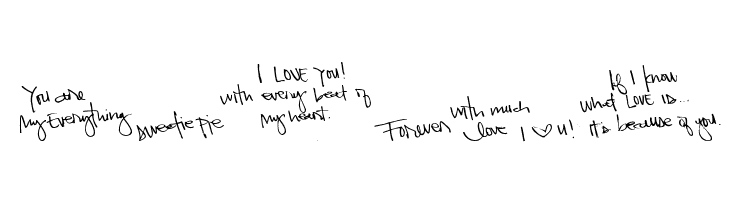 You are
My Everything
sweetie pie
I LOVE YOU!
with every beat of
my heart.
Forever
with much
love I ♡ u!
If I know
what LOVE is...
it's because of you.